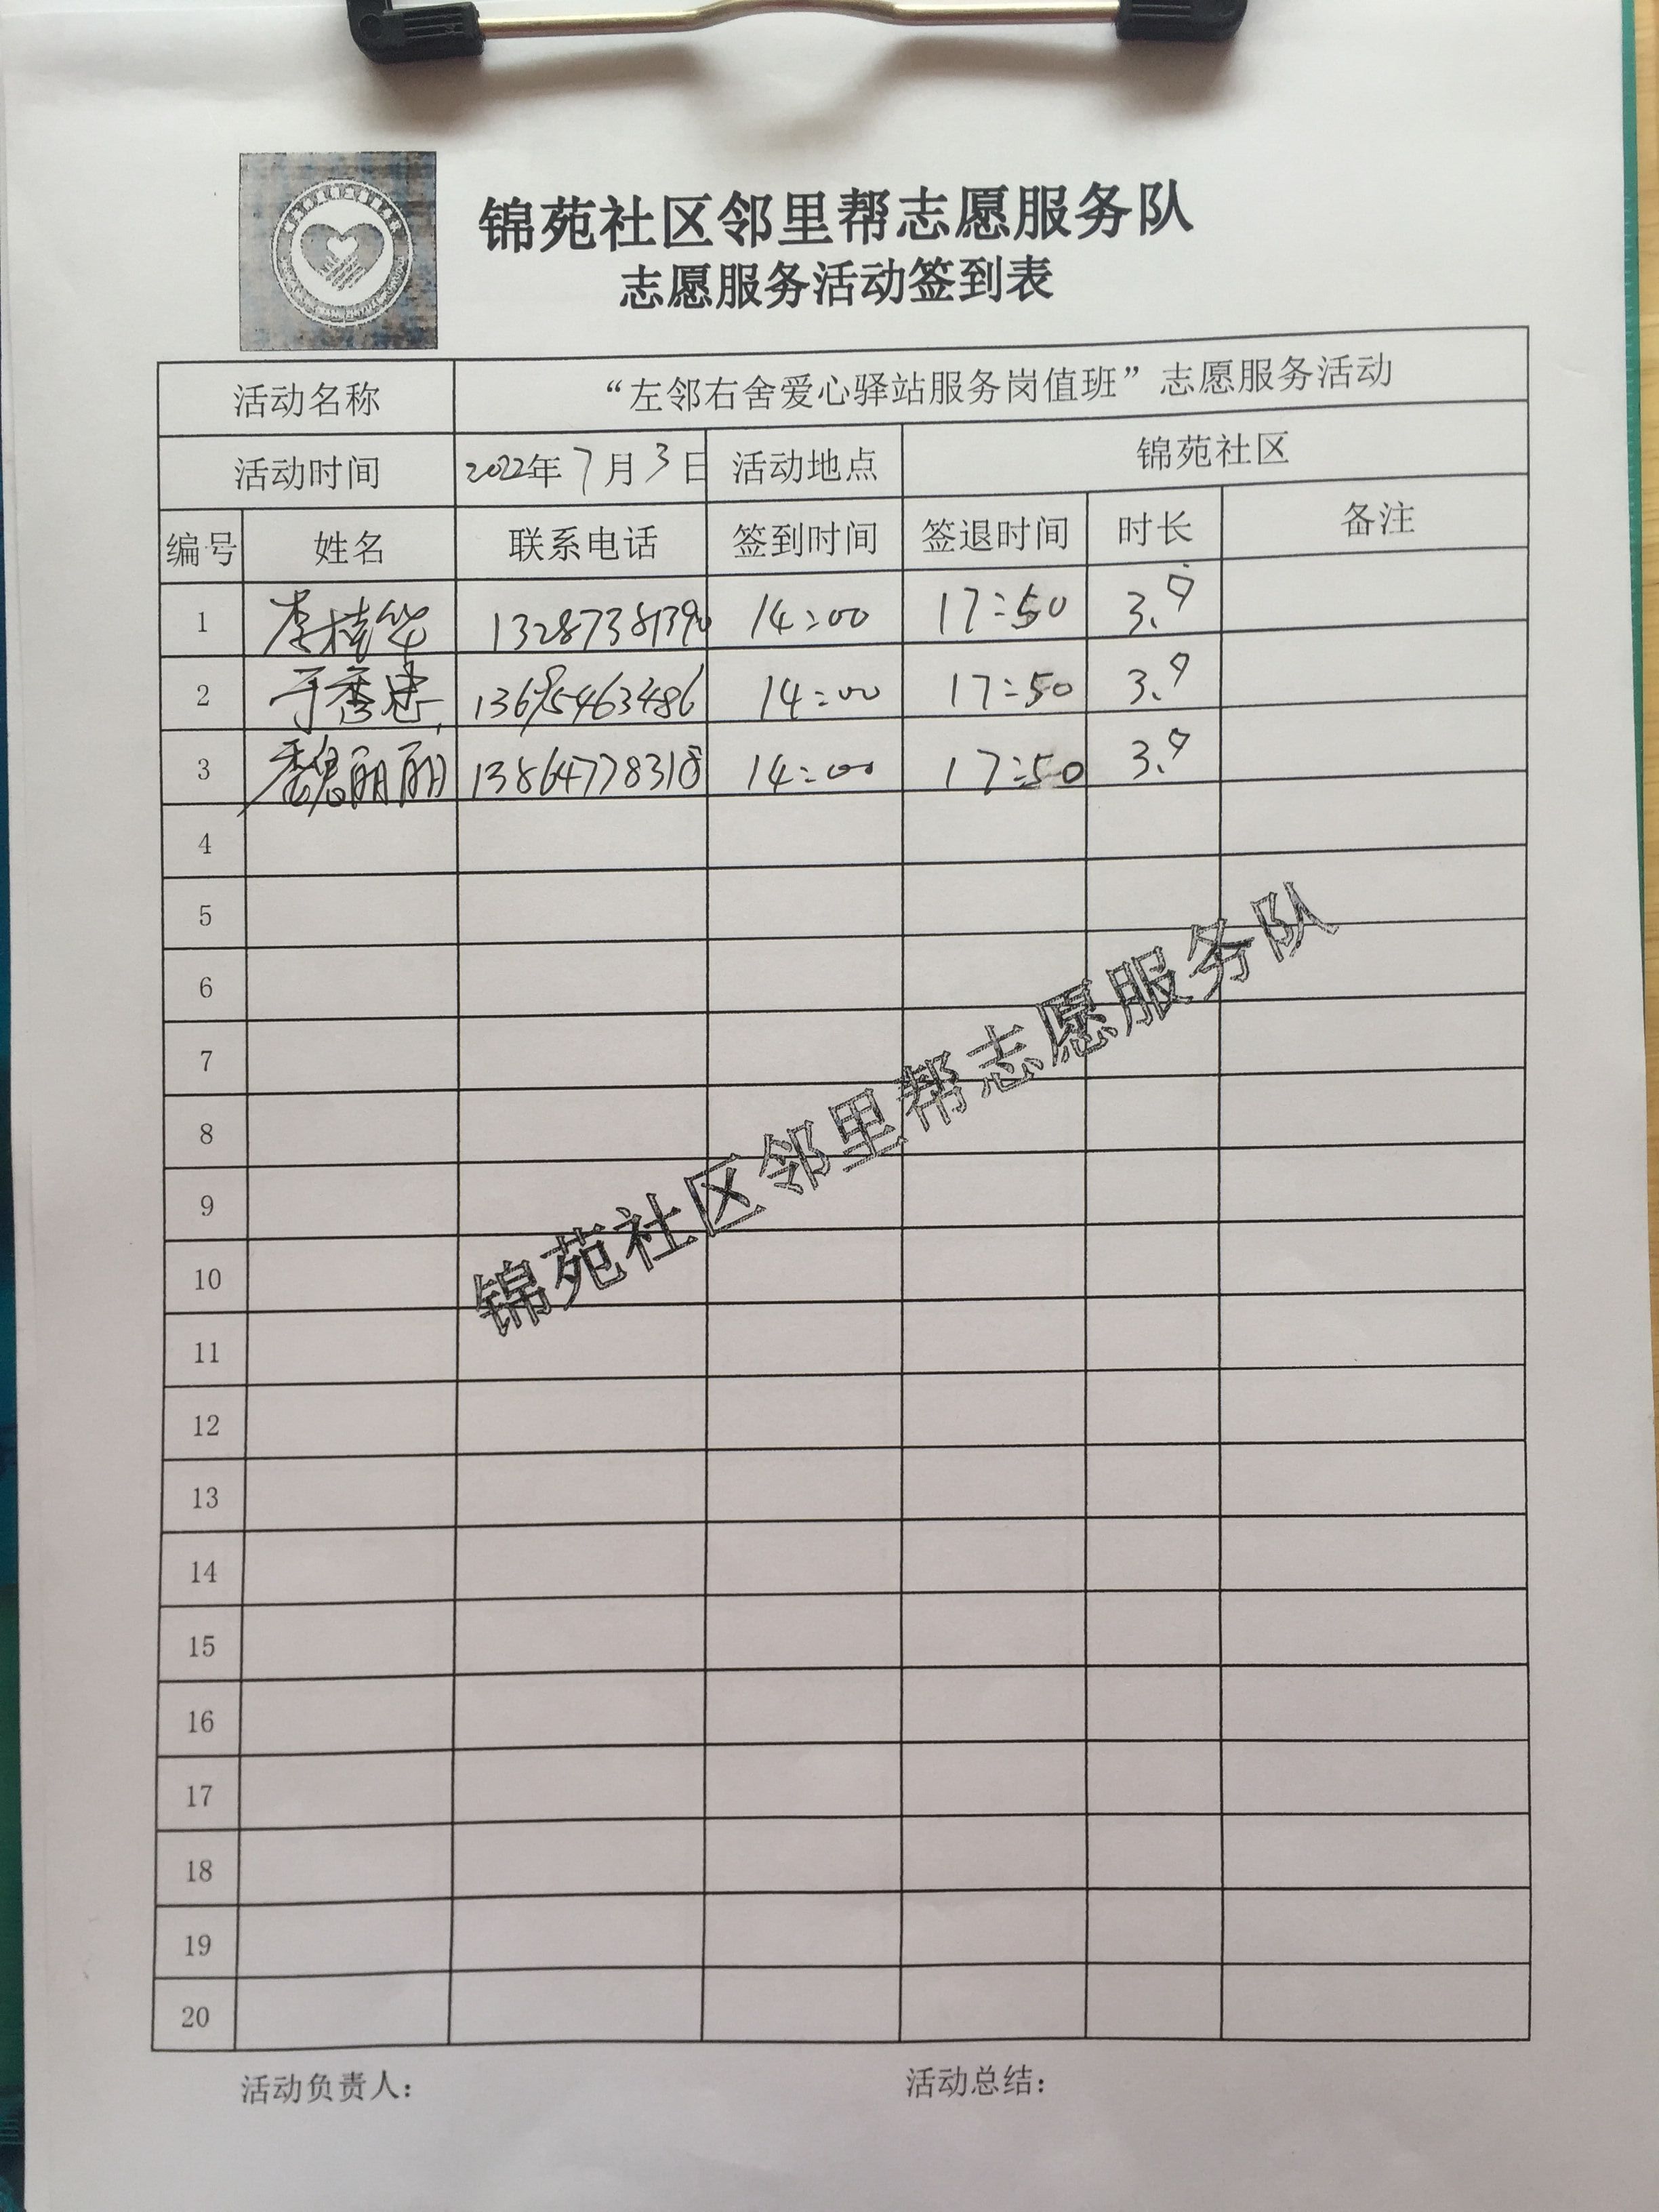 锦苑社区邻里帮志愿服务队
志愿服务活动签到表
活动名称 “左邻右舍爱心驿站服务岗值班”志愿服务活动
活动时间 2022年7月3日 活动地点 锦苑社区
编号 姓名 联系电话 签到时间 签退时间 时长 备注
1 李桂华 14:00 17:50 3.9
2 于秀忠 14:00 17:50 3.9
3 魏丽丽 13864778318 14:00 17:50 3.9
4
5
6
7
8
9
10
11
12
13
14
15
16
17
18
19
20
锦苑社区邻里帮志愿服务队
活动负责人: 活动总结: